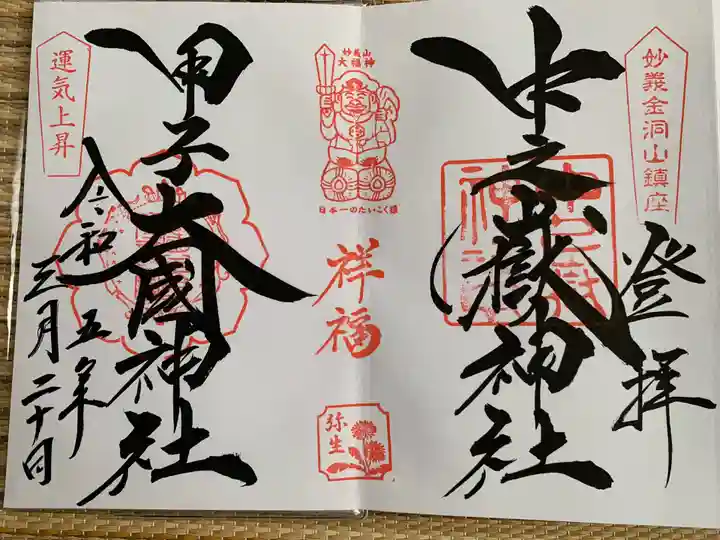 妙義金洞山鎮座
登拝
中之嶽神社
妙義山
大福神
日本一のだいこく様
祥福
弥生
甲子大國神社
運気上昇
令和五年
三月二十日